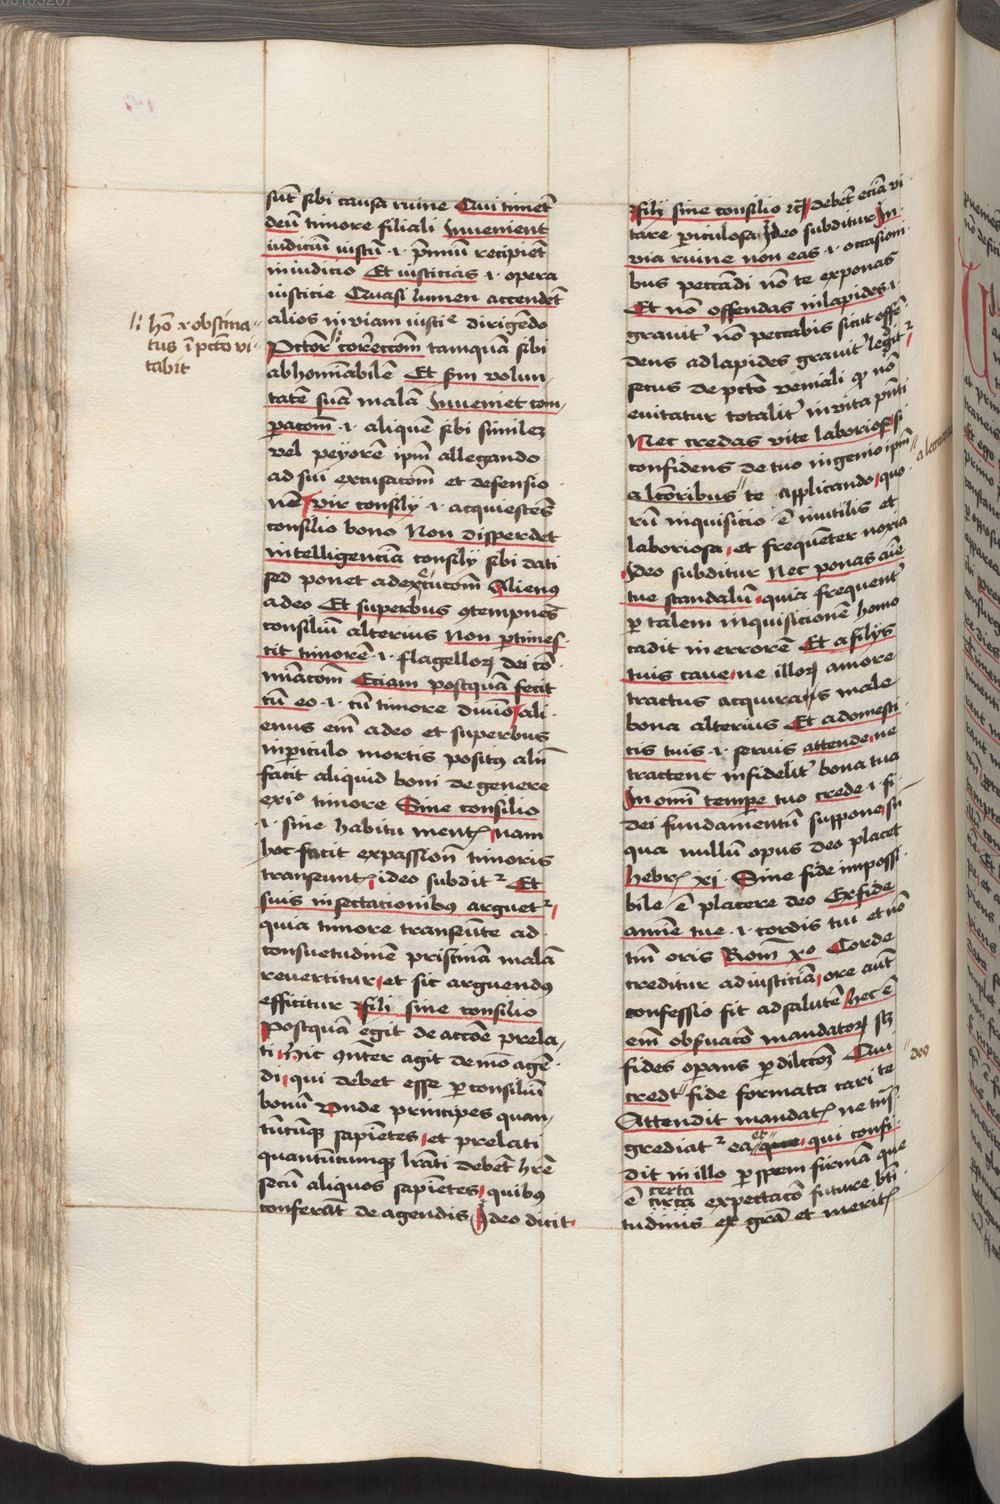 sūt sibi causa ruine Qui timet
deū timore filiali Invenient
iudiciū iustū .i. p̄miū recipiēt
in iudicio Et iusticias .i. opera
iusticie Quasi lumen accendēt
alios in viam iusti dirigēdo
Pctōr correccōm tamquā sibi
abhominabilē Et sm volun
tatē suā malā Inveniet com
pacom̄ .i. aliquē sibi similez
vel peyorē ipm̄ allegando
ad sui excusacōm et defensio
nē vir consilij .i. acquiescēs
consilio bono Non disperdet
intelligenciā consilij sibi dati
sed ponet ad executcōm Alienꝰ
a deo Et superbus ꝯtempnēs
consiliū alterius Non ptimes
cit timorē .i. flagelloꝝ dei cō
minacōm Eciam postquā fecit
cū eo .i. cū timore divino ali
enus em̄ a deo et superbus
in periculo mortis positꝰ aln̄
facit aliquid boni de genere
ex timore Sine consilio
.i. sine habitu mentꝭ nam
hoc facit ex passion timoris
transeuntꝭ ideo subditᷣ Et
suis insectationibꝰ arguetᷣ
quia timore transeūte ad
consuetudinē pristinā malā
revertitur et sic arguendꝰ
efficitur fili sine consilio
Postquā egit de accōe prela
ti hic ꝯnt̄er agit de mō agē
di qui debet esse per consiliū
bonū Vnde principes quan
tūcūqꝫ sapiētes et prelati
quantūcunqꝫ lrāti debēt hr̄e
secū aliquos sapiētes quibꝰ
conferāt de agendis Ideo dicit
hō obstina
tus ī pctō vi
tabit
fili sine consilio rc̄ debēt eciā vi
tare periculosa Ideo subditur In
via ruine non eas .i. occasioni
bus peccādi nō te exponas
Et nō offendas in lapides .i.
gravit nō peccabis sicut offē
dens ad lapides gravit leditᷣ
secus de pctō veniali qꝫ nō
evitatur totalit in vita pn̄ti
Nec credas vite laboriose si
confidens de tuo ingenio ipm̄
a te applicando quo
rū inquisicio ē inutilis et
laboriosa et frequēter noxia
Ideo subditur Nec ponas aīe
tue scandalū quia frequent
per talem inquisicionē homo
cadit in errorē Et a filijs
tuis cave ne illoꝝ amore
tractus acquiras male
bona alterius Et a domesti
cis tuis .i. servis attende ne
tractent infidelit bona tua
In omī tempe tuo crede .i. fi
dei fundamentū suppone si
qua nullū opus deo placet
hebrꝭ xi Sine fide impossi
bile ē placere deo Ex fide
anime tue .i. cordis tui et nō
tm̄ oris Rom̄ xo Corde
creditur ad iusticiā ore aūt
confessio fit ad salutē hec ē
em̄ obsuacō mandatoꝝ scz
fides opans per dilccōz Qui
credit fide formata cari te
deo
Attendit mandatꝭ ne tns
grediatᷣ ea qui confi
dit in illo per spem firmā que
ē certa expectacō future bti
tudinis ex grā et meritꝭ